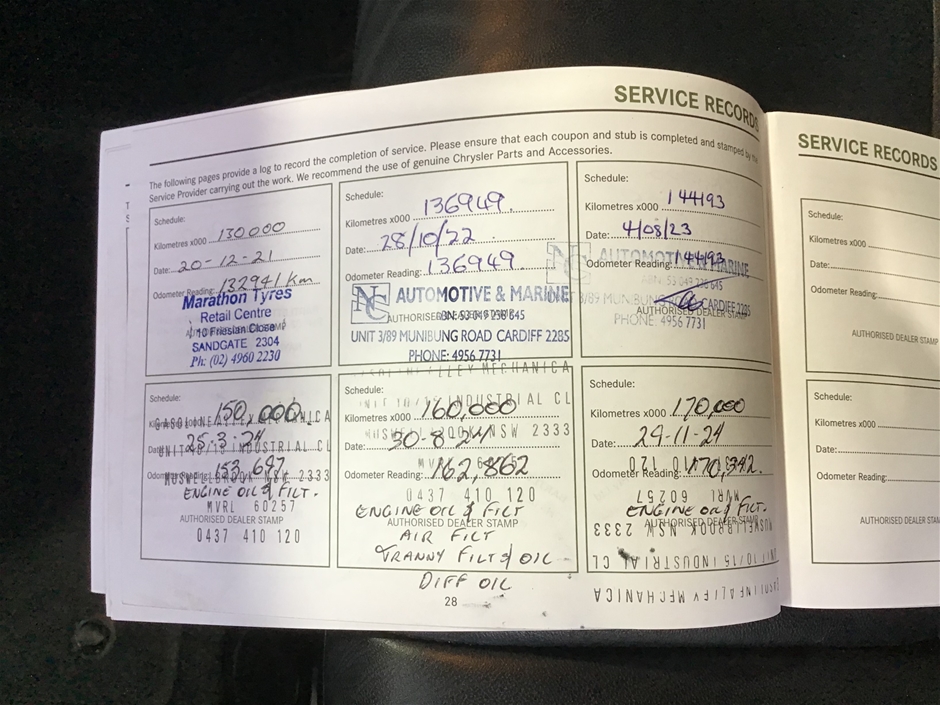 SERVICE RECORDS
The following pages provide a log to record the completion of service. Please ensure that each coupon and stub is completed and stamped by the
Service Provider carrying out the work. We recommend the use of genuine Chrysler Parts and Accessories.
Schedule:
Kilometres x000 130000
Date: 20-12-21
Odometer Reading: 132941 km
Marathon Tyres
Retail Centre
10 Friesian Close
SANDGATE 2304
Ph: (02) 4960 2230
Schedule:
Kilometres x000 136949.
Date: 28/10/22
Odometer Reading: 136949
NC AUTOMOTIVE & MARINE
AUTHORISED DEALER STAMP
UNIT 3/89 MUNIBUNG ROAD CARDIFF 2285
PHONE: 4956 7731
Schedule:
Kilometres x000 144193
Date: 4/08/23
Odometer Reading: 144193
AUTOMOTIVE & MARINE
3/89 MUNIBUNG CARDIFF 2285
AUTHORISED DEALER STAMP
PHONE: 4956 7731
Schedule:
Kilometres x000 150,000
Date: 25-3-24
INDUSTRIAL CL
Odometer Reading: 153,697
MUSWELLBROOK NSW 2333
ENGINE OIL & FILT.
MVRL 60257
AUTHORISED DEALER STAMP
0437 410 120
MECHANICA
Schedule:
INDUSTRIAL CL
Kilometres x000 160,000
MUSWELLBROOK NSW 2333
Date: 30-8-24
Odometer Reading: 162,862
0437 410 120
ENGINE OIL & FILT
AUTHORISED DEALER STAMP
AIR FILT
TRANNY FILT & OIL
DIFF OIL
Schedule:
Kilometres x000 170,000
Date: 29-11-24
Odometer Reading: 170,342.
MVRL 60257
ENGINE OIL & FILT.
AUTHORISED DEALER STAMP
NSW 2333
UNIT 10/15 INDUSTRIAL CL
MECHANICA
28
SERVICE RECORDS
Schedule:
Kilometres x000
Date:
Odometer Reading:
AUTHORISED DEALER STAMP
Schedule:
Kilometres x000
Date:
Odometer Reading:
AUTHORISED DEALER STAMP